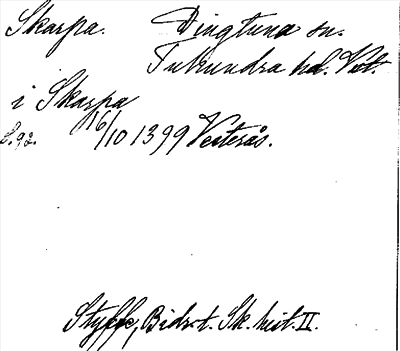 Skarpa. Dingtuna sn.
Tuhundra hd. Vstm.
i Skarpa
s. 92. 16/10 1399 Vesterås.
Styffe, Bidr. t. Sk. hist. II.